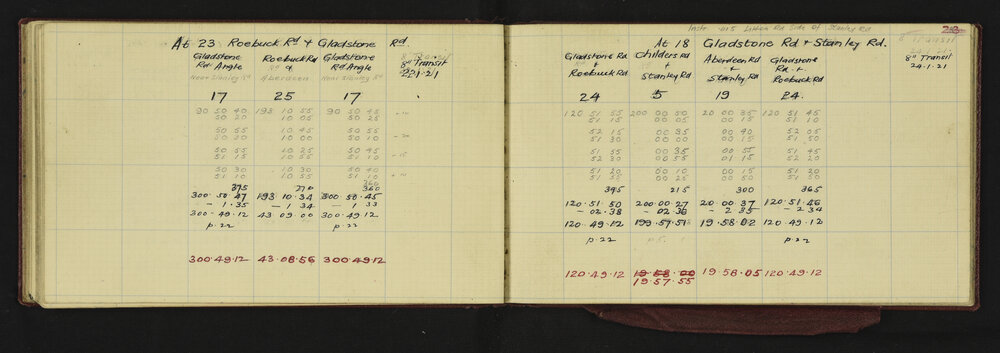 At 23 Roebuck Rd + Gladstone Rd.
Gladstone Roebuck Rd Gladstone 8" Transit
Rd Angle + Rd. Angle 22.1.21
Near Stanley Rd Aberdeen Near Stanley Rd
17 25 17
90 50 40 193 10 55 90 50 45
50 20 10 05 50 25
50 55 10 45 50 55
50 30 10 00 50 10
50 55 10 25 50 45
51 15 10 55 51 10
50 30 10 30 50 40
51 10 10 55 51 10
360
395 270 360
300.50.47 193.10.34 300.50.45
– 1.35 – 1 34 – 1 33
300.49.12 43 09 00 300.49.12
p.22 p.22
300.49.12 43.08.56 300.49.12
Side of Stanley Rd
At 18 Gladstone Rd + Stanley Rd.
Gladstone Rd Childers Rd Aberdeen Rd Gladstone 8" Transit
+ + + Rd. + 24.1.21
Roebuck Rd Stanley Rd Stanley Rd Roebuck Rd
24 5 19 24.
120 51 55 200 00 50 20 00 35 120 51 45
51 15 00 05 00 15 51 10
52 15 00 35 00 40 52 05
51 30 00 00 00 15 51 50
51 55 00 35 00 55 51 45
52 30 00 55 01 15 52 20
51 20 00 10 00 15 51 20
51 55 00 25 00 50 51 50
395 215 300 365
120.51.50 200.00.27 20.00.37 120.51.46
– 02.38 – 02.36 – 2 35 – 2 34
120.49.12 199.57.51 19.58.02 120.49.12
p.22 p.5. p.22
120.49.12 19 58.00 19.58.05 120.49.12
19.57.55